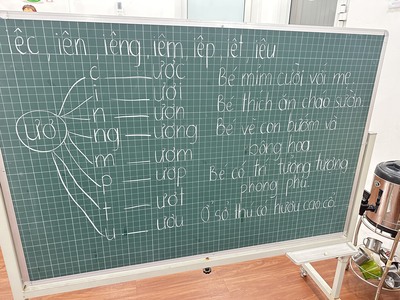 iêc, iên, iêng, iêm, iêp, iêt, iêu
ươ
c — ươc
i — ươi
n — ươn
ng — ương
m — ươm
p — ươp
t — ươt
u — ươu
Bé mỉm cười với mẹ.
Bé thích ăn cháo sườn.
Bé vẽ con bướm và
bông hoa.
Bé có trí tưởng tượng
phong phú.
Ở sở thú có hươu cao cổ.